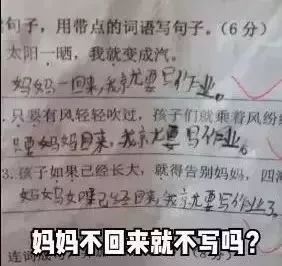 句子，用带点的词语写句子。(6分)
太阳一晒，我就变成汽。
妈妈一回来，我就要写作业。
.只要有风轻轻吹过，孩子们就乘着风纷
只要妈妈回来，我就要写作业。
3.孩子如果已经长大，就得告别妈妈，四海
妈妈如果已经回来，我就要写作业了。
妈妈不回来就不写吗？
连词成句